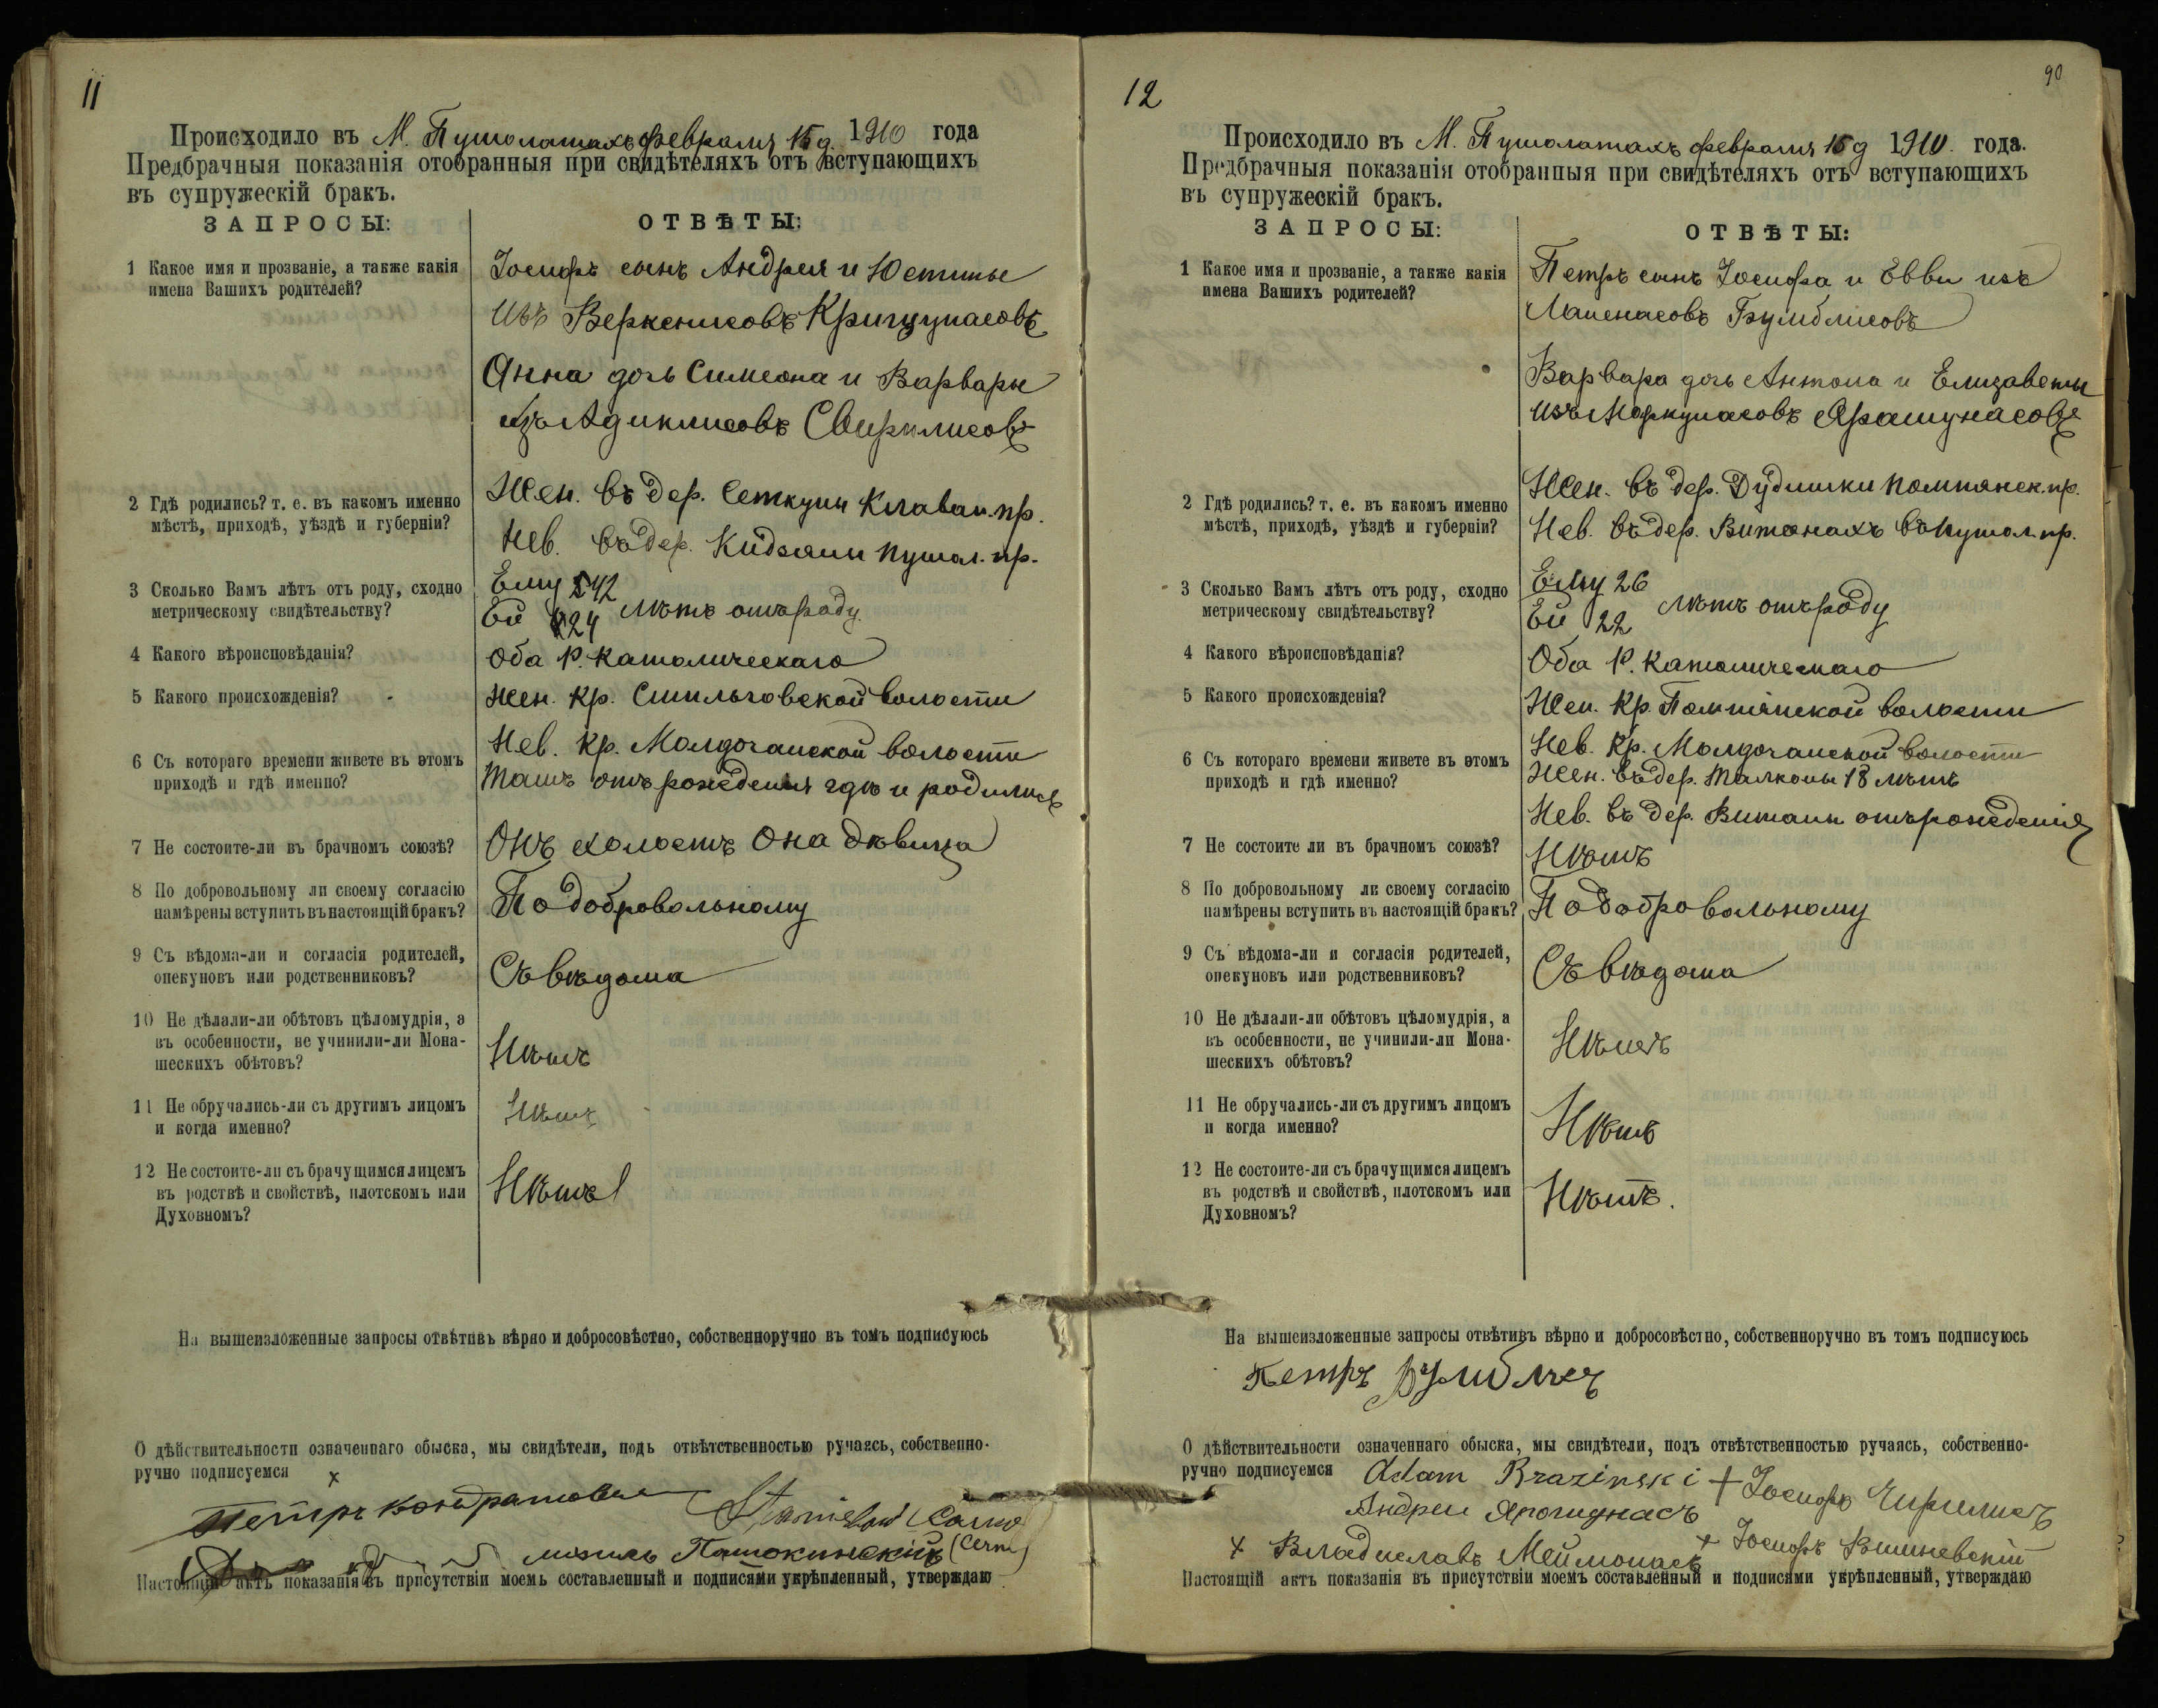 11
Происходило въ М. Пушолатахъ февраля 15 д. 1910 года
Предбрачныя показанія отобранныя при свидѣтеляхъ отъ вступающихъ
въ супружескій бракъ.
ЗАПРОСЫ:
ОТВѢТЫ:
1 Какое имя и прозваніе, а также какія
имена Вашихъ родителей?
Іосифъ сынъ Андрея и Юстины
изъ
Анна дочь Симеона и Варвары
изъ
2 Гдѣ родились? т. е. въ какомъ именно
мѣстѣ, приходѣ, уѣздѣ и губерніи?
Жен. въ дер. Сеткуны Клован. пр.
Нев. въ дер. Кидзяни пушол. пр.
3 Сколько Вамъ лѣтъ отъ роду, сходно
метрическому свидѣтельству?
Ему 42
Ей 24 лѣтъ отъ роду.
4 Какого вѣроисповѣданія?
Оба Р. Католическаго
5 Какого происхожденія?
Жен. Кр. Смильговской волости
Нев. Кр. волости
6 Съ котораго времени живете въ этомъ
приходѣ и гдѣ именно?
Тамъ отъ рожденія гдѣ и родились
7 Не состоите-ли въ брачномъ союзѣ?
Онъ холостъ Она дѣвица
8 По добровольному ли своему согласію
намѣрены вступить въ настоящій бракъ?
По добровольному
9 Съ вѣдома-ли и согласія родителей,
опекуновъ или родственниковъ?
Съ вѣдома
10 Не дѣлали-ли обѣтовъ цѣломудрія, а
въ особенности, не учинили-ли Мона-
шескихъ обѣтовъ?
Нѣтъ
11 Не обручались-ли съ другимъ лицомъ
и когда именно?
Нѣтъ
12 Не состоите-ли съ брачущимся лицемъ
въ родствѣ и свойствѣ, плотскомъ или
Духовномъ?
Нѣтъ
На вышеизложенные запросы отвѣтивъ вѣрно и добросовѣстно, собственноручно въ томъ подписуюсь
О дѣйствительности означеннаго обыска, мы свидѣтели, подъ отвѣтственностью ручаясь, собственно-
ручно подписуемся x
Петръ
Настоящій актъ показанія въ присутствіи моемъ составленный и подписями укрѣпленный, утверждаю
12
90
Происходило въ М. Пушолатахъ февраля 15 д 1910 года.
Предбрачныя показанія отобранныя при свидѣтеляхъ отъ вступающихъ
въ супружескій бракъ.
ЗАПРОСЫ:
ОТВѢТЫ:
1 Какое имя и прозваніе, а также какія
имена Вашихъ родителей?
Петръ сынъ Іосифа и Еввы изъ
Лапенасовъ Бумблисовъ
Варвара дочь Антона и Елизаветы
изъ Меркунасовъ
2 Гдѣ родились? т. е. въ какомъ именно
мѣстѣ, приходѣ, уѣздѣ и губерніи?
Жен. въ дер. Помпянск. пр.
Нев. въ дер. Витанахъ въ пушол. пр.
3 Сколько Вамъ лѣтъ отъ роду, сходно
метрическому свидѣтельству?
Ему 26
Ей 22 лѣтъ отъ роду
4 Какого вѣроисповѣданія?
Оба Р. Католическаго
5 Какого происхожденія?
Жен. Кр. Помпянской волости
Нев. Кр. волости
6 Съ котораго времени живете въ этомъ
приходѣ и гдѣ именно?
Жен. въ дер. Талконы 18 лѣтъ
Нев. въ дер. Витаны отъ рожденія
7 Не состоите ли въ брачномъ союзѣ?
Нѣтъ
8 По добровольному ли своему согласію
намѣрены вступить въ настоящій бракъ?
По добровольному
9 Съ вѣдома-ли и согласія родителей,
опекуновъ или родственниковъ?
Съ вѣдома
10 Не дѣлали-ли обѣтовъ цѣломудрія, а
въ особенности, не учинили-ли Мона-
шескихъ обѣтовъ?
Нѣтъ
11 Не обручались-ли съ другимъ лицомъ
и когда именно?
Нѣтъ
12 Не состоите-ли съ брачущимся лицемъ
въ родствѣ и свойствѣ, плотскомъ или
Духовномъ?
Нѣтъ.
На вышеизложенные запросы отвѣтивъ вѣрно и добросовѣстно, собственноручно въ томъ подписуюсь
Петръ
О дѣйствительности означеннаго обыска, мы свидѣтели, подъ отвѣтственностью ручаясь, собственно-
ручно подписуемся Adam Brazinski + Іосифъ
Андрей
x Владиславъ + Іосифъ Вишневскій
Настоящій актъ показанія въ присутствіи моемъ составленный и подписями укрѣпленный, утверждаю